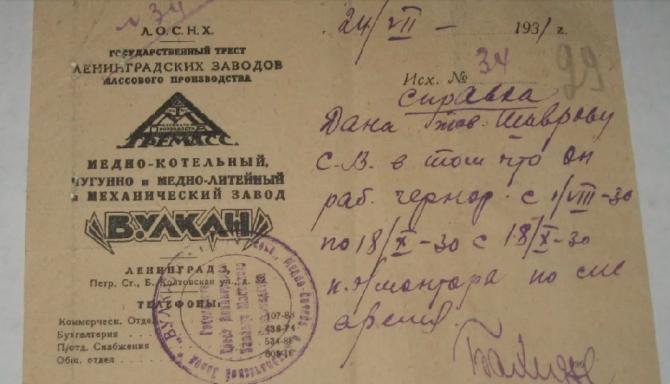 л. 34
Л.О.С.Н.Х.
ГОСУДАРСТВЕННЫЙ ТРЕСТ
ЛЕНИНГРАДСКИХ ЗАВОДОВ
МАССОВОГО ПРОИЗВОДСТВА
ТРЕМАСС
МЕДНО-КОТЕЛЬНЫЙ,
ЧУГУННО и МЕДНО-ЛИТЕЙНЫЙ
и МЕХАНИЧЕСКИЙ ЗАВОД
ВУЛКАН
ЛЕНИНГРАД,
Петр. Ст., Б. Колтовская ул., д.
ТЕЛЕФОНЫ:
Коммерческ. Отдел
Бухгалтерия
П/отд. Снабжения
Общ. отдел
24/VII — 1931 г.
Исх. № 34
99
Справка
Дана тов. Шаврову
С.В. в том что он
раб. чернор. с 1/VIII-30
по 18/X-30 с 18/X-30
монтера по